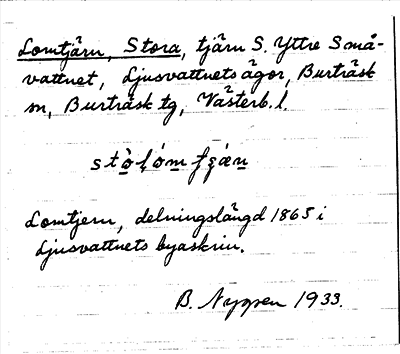 Lomtjärn, Stora, tjärn S. Yttre Små-
vattnet, Ljusvattnets ägor, Burträsk
sn, Burträsk tg, Västerb. l.
Lomtjern, delningslängd 1865 i
Ljusvattnets byaskrin.
B. Nyppen 1933.